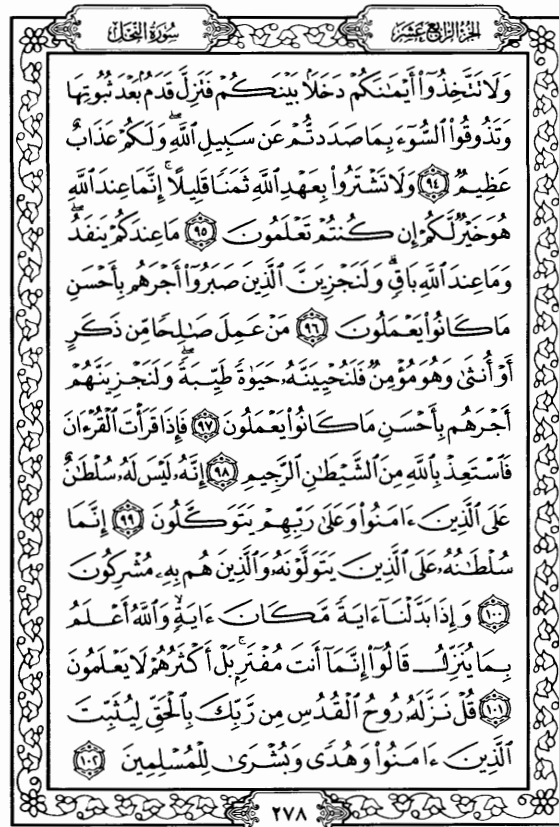 سُورَةُ النَّحْلِ
الجُزْءُ الرَّابِعَ عَشَرَ
وَلَا تَتَّخِذُوٓا۟ أَيْمَٰنَكُمْ دَخَلًۢا بَيْنَكُمْ فَتَزِلَّ قَدَمٌۢ بَعْدَ ثُبُوتِهَا
وَتَذُوقُوا۟ ٱلسُّوٓءَ بِمَا صَدَدتُّمْ عَن سَبِيلِ ٱللَّهِ ۖ وَلَكُمْ عَذَابٌ
عَظِيمٌ ٩٤ وَلَا تَشْتَرُوا۟ بِعَهْدِ ٱللَّهِ ثَمَنًا قَلِيلًا ۚ إِنَّمَا عِندَ ٱللَّهِ
هُوَ خَيْرٌ لَّكُمْ إِن كُنتُمْ تَعْلَمُونَ ٩٥ مَا عِندَكُمْ يَنفَدُ ۖ
وَمَا عِندَ ٱللَّهِ بَاقٍ ۗ وَلَنَجْزِيَنَّ ٱلَّذِينَ صَبَرُوٓا۟ أَجْرَهُم بِأَحْسَنِ
مَا كَانُوا۟ يَعْمَلُونَ ٩٦ مَنْ عَمِلَ صَٰلِحًا مِّن ذَكَرٍ
أَوْ أُنثَىٰ وَهُوَ مُؤْمِنٌ فَلَنُحْيِيَنَّهُۥ حَيَوٰةً طَيِّبَةً ۖ وَلَنَجْزِيَنَّهُمْ
أَجْرَهُم بِأَحْسَنِ مَا كَانُوا۟ يَعْمَلُونَ ٩٧ فَإِذَا قَرَأْتَ ٱلْقُرْءَانَ
فَٱسْتَعِذْ بِٱللَّهِ مِنَ ٱلشَّيْطَٰنِ ٱلرَّجِيمِ ٩٨ إِنَّهُۥ لَيْسَ لَهُۥ سُلْطَٰنٌ
عَلَى ٱلَّذِينَ ءَامَنُوا۟ وَعَلَىٰ رَبِّهِمْ يَتَوَكَّلُونَ ٩٩ إِنَّمَا
سُلْطَٰنُهُۥ عَلَى ٱلَّذِينَ يَتَوَلَّوْنَهُۥ وَٱلَّذِينَ هُم بِهِۦ مُشْرِكُونَ
١٠٠ وَإِذَا بَدَّلْنَآ ءَايَةً مَّكَانَ ءَايَةٍ ۙ وَٱللَّهُ أَعْلَمُ
بِمَا يُنَزِّلُ قَالُوٓا۟ إِنَّمَآ أَنتَ مُفْتَرٍۭ ۚ بَلْ أَكْثَرُهُمْ لَا يَعْلَمُونَ
١٠١ قُلْ نَزَّلَهُۥ رُوحُ ٱلْقُدُسِ مِن رَّبِّكَ بِٱلْحَقِّ لِيُثَبِّتَ
ٱلَّذِينَ ءَامَنُوا۟ وَهُدًى وَبُشْرَىٰ لِلْمُسْلِمِينَ ١٠٢
٢٧٨